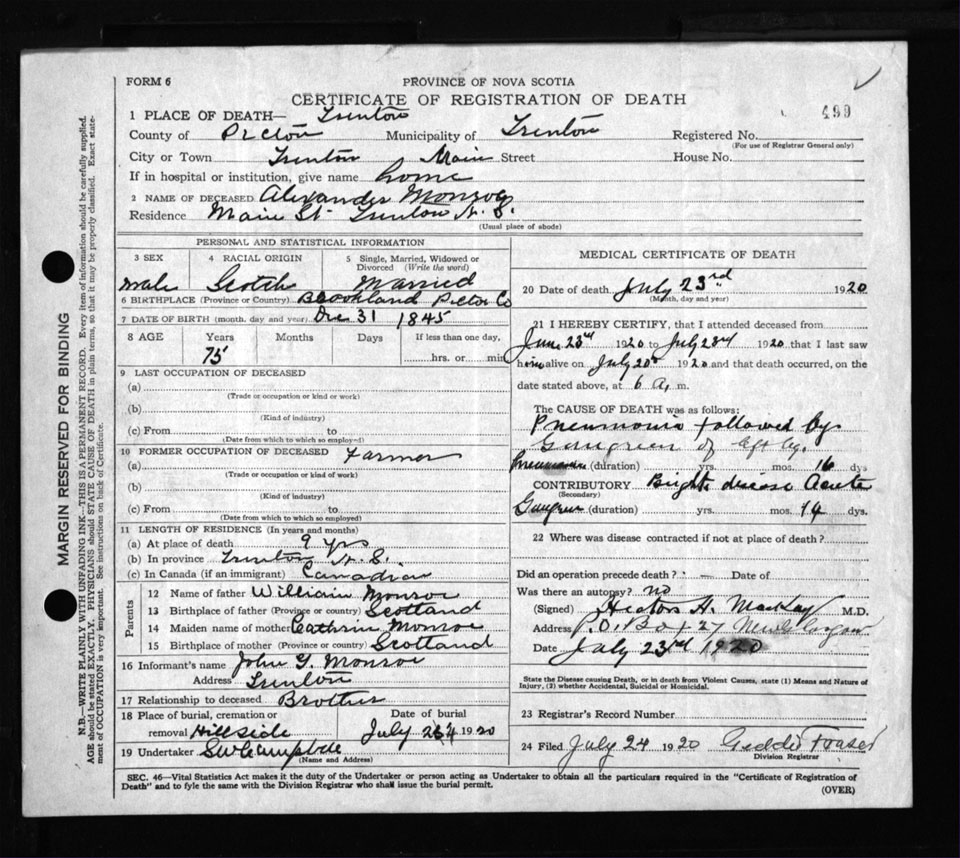 FORM 6
PROVINCE OF NOVA SCOTIA
499
CERTIFICATE OF REGISTRATION OF DEATH
1 PLACE OF DEATH— Trenton
County of Pictou Municipality of Trenton Registered No.
(For use of Registrar General only)
City or Town Trenton Main Street House No.
If in hospital or institution, give name home
2 NAME OF DECEASED Alexander Monroe
Residence Main St. Trenton N.S.
(Usual place of abode)
PERSONAL AND STATISTICAL INFORMATION
3 SEX 4 RACIAL ORIGIN 5 Single, Married, Widowed or Divorced (Write the word)
male Scotch Married
6 BIRTHPLACE (Province or Country) Brookland Pictou Co
7 DATE OF BIRTH (month, day and year) Dec 31 1845
8 AGE Years Months Days If less than one day,
75 hrs. or min
9 LAST OCCUPATION OF DECEASED
(a)
(Trade or occupation or kind or work)
(b)
(Kind of industry)
(c) From to
(Date from which to which so employed)
10 FORMER OCCUPATION OF DECEASED Farmer
(a)
(Trade or occupation or kind or work)
(b)
(Kind of industry)
(c) From to
(Date from which to which so employed)
11 LENGTH OF RESIDENCE (In years and months)
(a) At place of death 9 yrs
(b) In province Trenton N.S.
(c) In Canada (if an immigrant) Canadian
Parents
12 Name of father William Monroe
13 Birthplace of father (Province or country) Scotland
14 Maiden name of mother Cathrin Monroe
15 Birthplace of mother (Province or country) Scotland
16 Informant's name John G. Monroe
Address Trenton
17 Relationship to deceased Brother
18 Place of burial, cremation or removal Hillside
Date of burial July 24 1920
19 Undertaker SW Campbell
(Name and Address)
MEDICAL CERTIFICATE OF DEATH
20 Date of death July 23rd 1920
(Month, day and year)
21 I HEREBY CERTIFY, that I attended deceased from
June 23rd 1920 to July 23rd 1920 that I last saw
him alive on July 20th 1920 and that death occurred, on the
date stated above, at 6 a, m.
The CAUSE OF DEATH was as follows:
Pneumonia followed by
Gangreen of left leg.
Pneumonia (duration) yrs. mos. 16 dys
CONTRIBUTORY Brights disease Acute
(Secondary)
Gangreen (duration) yrs. mos. 14 dys.
22 Where was disease contracted if not at place of death?
Did an operation precede death? — Date of
Was there an autopsy? no
(Signed) H. MacKay M.D.
Address P.O. Box 27 New Glasgow
Date July 23rd 1920
State the Disease causing Death, or in death from Violent Causes, state (1) Means and Nature of
Injury, (2) whether Accidental, Suicidal or Homicidal.
23 Registrar's Record Number
24 Filed July 24 1920 Geddie Fraser
Division Registrar
SEC. 46—Vital Statistics Act makes it the duty of the Undertaker or person acting as Undertaker to obtain all the particulars required in the "Certificate of Registration of
Death" and to fyle the same with the Division Registrar who shall issue the burial permit.
(OVER)
MARGIN RESERVED FOR BINDING
N.B.—WRITE PLAINLY WITH UNFADING INK—THIS IS A PERMANENT RECORD. Every item of information should be carefully supplied.
AGE should be stated EXACTLY. PHYSICIANS should STATE CAUSE OF DEATH in plain terms, so that it may be properly classified. Exact state-
ment of OCCUPATION is very important. See instructions on back of Certificate.